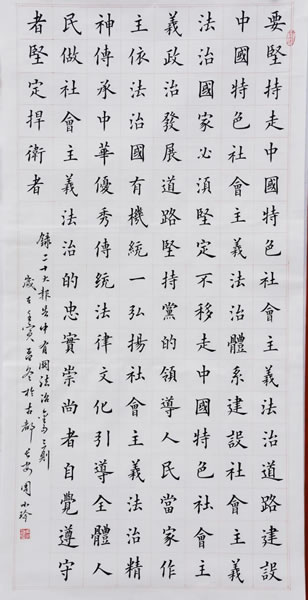 要堅持走中國特色社會主義法治道路建設
中國特色社會主義法治體系建設社會主義
法治國家必須堅定不移走中國特色社會主
義政治發展道路堅持黨的領導人民當家作
主依法治國有機統一弘揚社會主義法治精
神傳承中華優秀傳統法律文化引導全體人
民做社會主義法治的忠實崇尚者自覺遵守
者堅定捍衛者
錄二十大報告中有關法治
歲在壬寅孟冬於古都長安周小玲